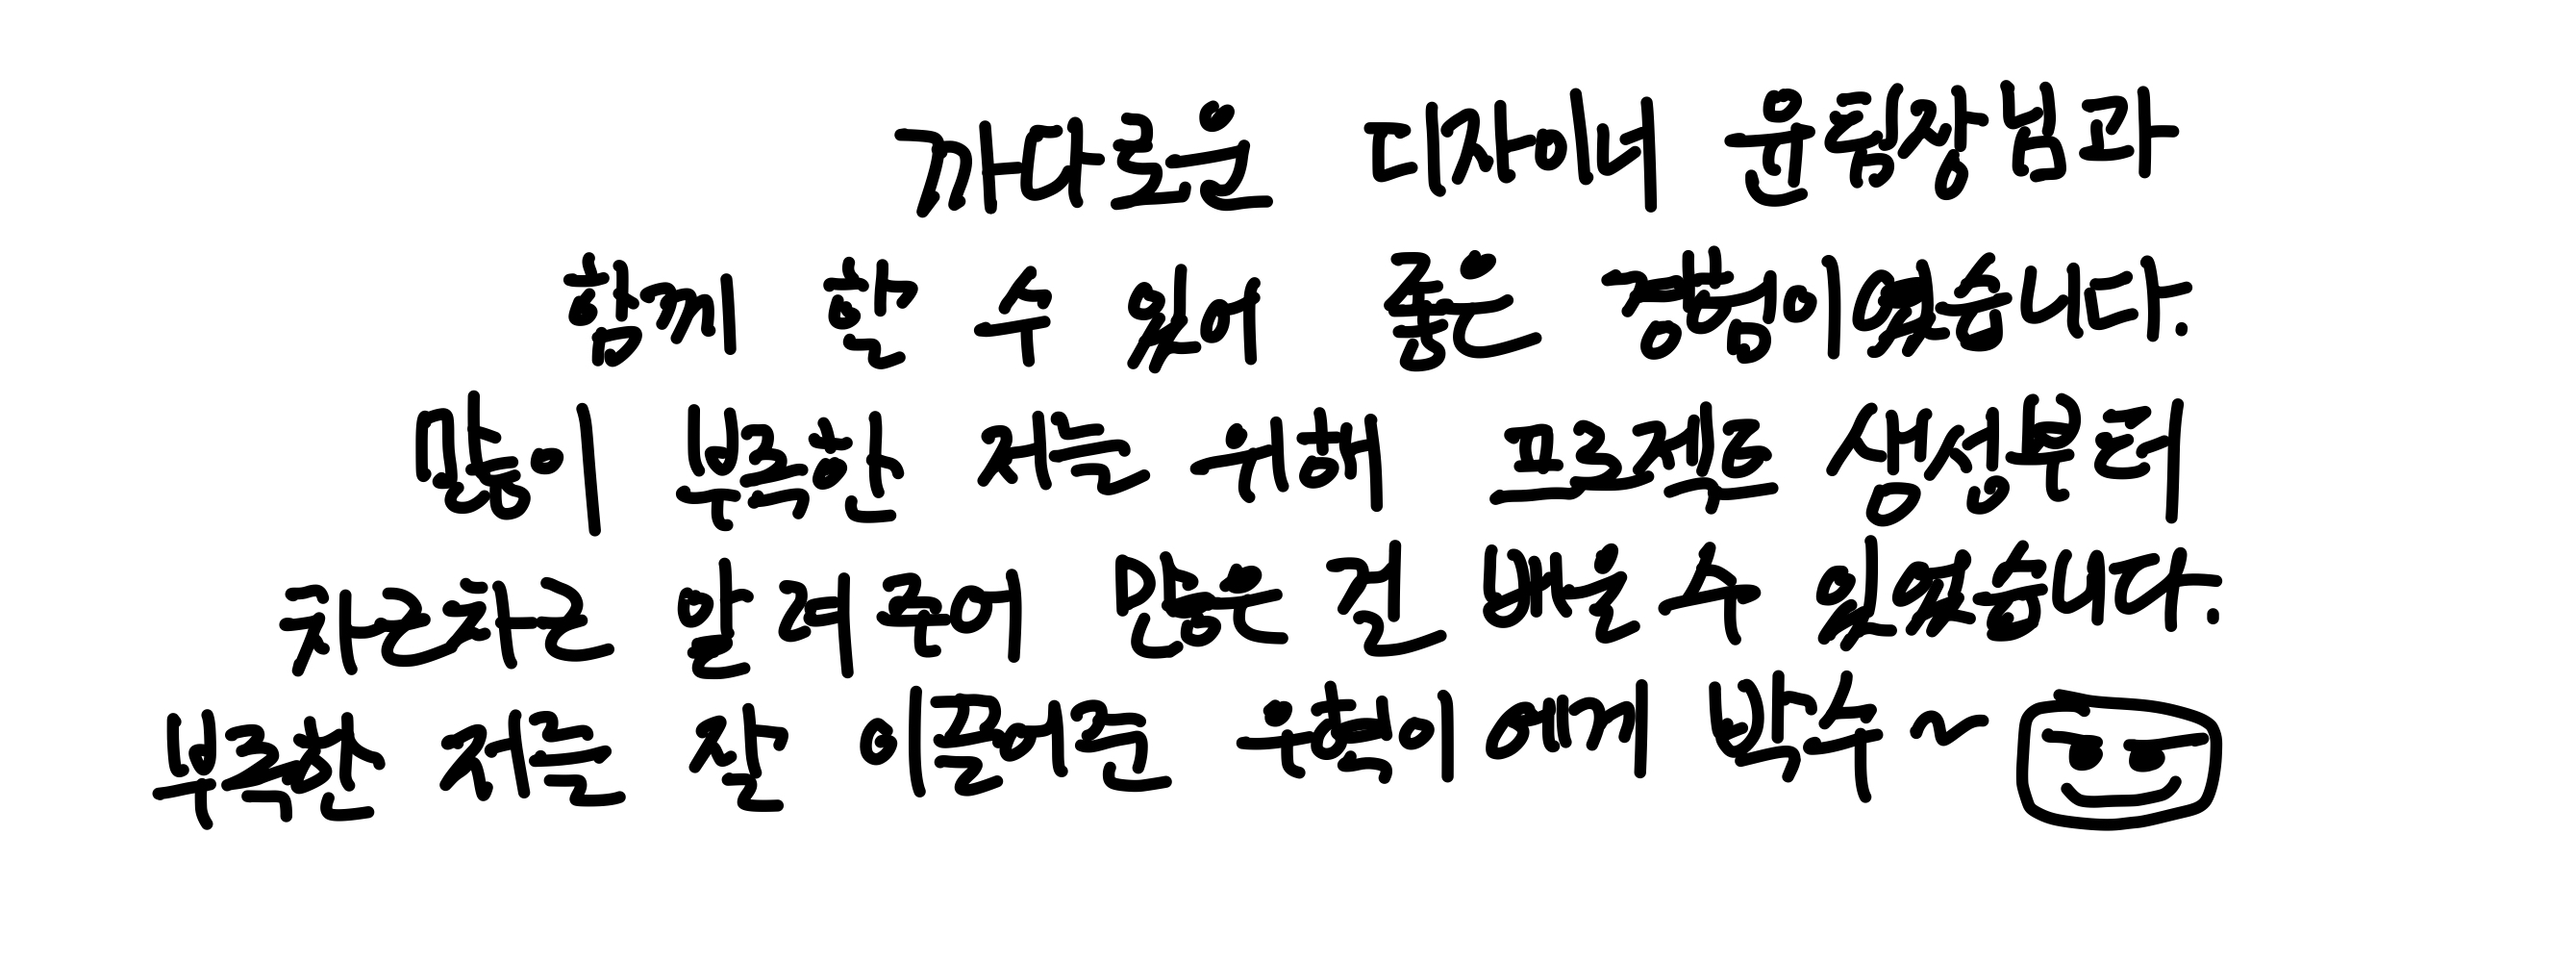 까다로운 디자이너 윤팀장님과
함께 할 수 있어 좋은 경험이였습니다.
많이 부족한 저는 위해 프로젝트 생성부터
차근차근 알려주어 많은 걸 배울 수 있었습니다.
부족한 저를 잘 이끌어준 우혁이에게 박수~